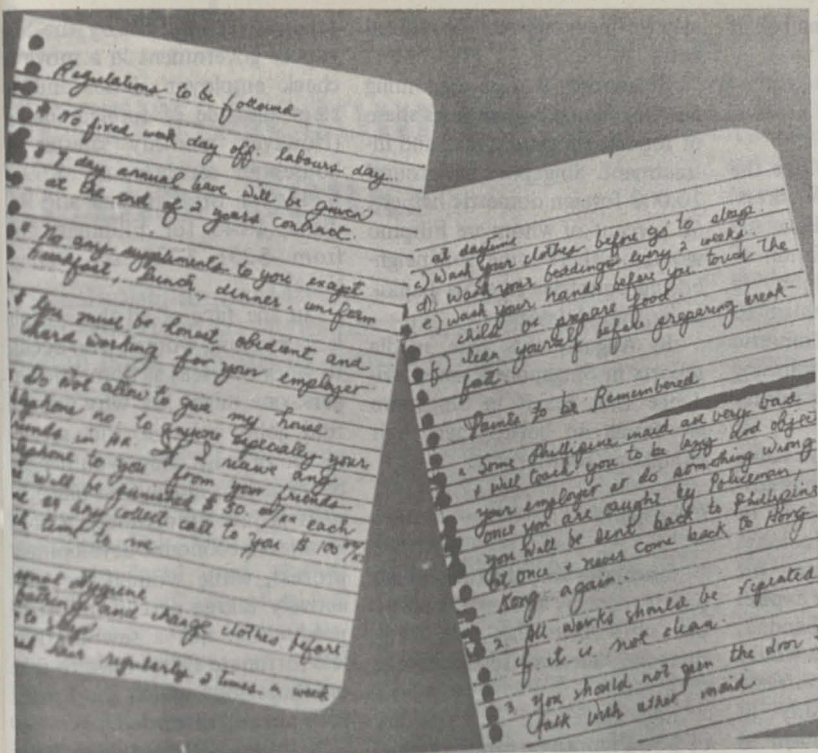 Regulations to be followed
* No fixed week day off. labours day
* 7 day annual leave will be given
at the end of 2 years contract.
* No any suppliments to you except
breakfast, lunch, dinner. uniform
* You must be honest, obedient and
hard working for your employer
Do not allow to give my house
telephone no. to anyone especially your
friends in HK. If I receive any
telephone to you from your friends
will be punished $ 50. each
or any collect call to you $ 100
time to me
Hygiene
bathing and change clothes before
to sleep
hair regularly 2 times a week
at daytime
c) Wash your clothes before go to sleep.
d) Wash your beadings every 2 weeks.
e) Wash your hands before you touch the
child or prepare food.
f) clean yourself before preparing break-
fast.
Points to be Remembered
1. Some Phillipine maid are very bad
+ will teach you to be lazy and object
your employer or do something wrong
once you are caught by Policeman,
you will be sent back to Phillipine
at once + never come back to Hong
Kong again.
2. All works should be repeated
if it is not clean.
3. You should not open the door +
talk with other maid